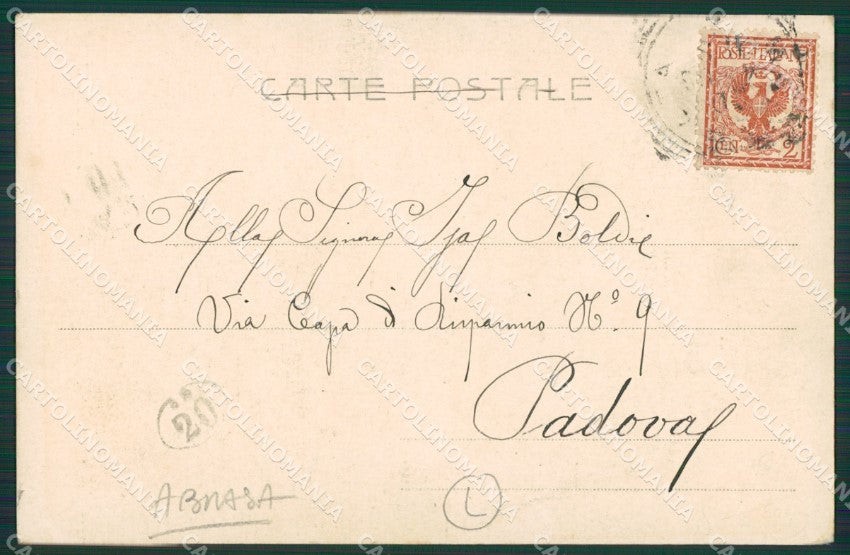 CARTE POSTALE
POSTE ITALIANE
CEN 2
Alla Signora Isa Boldie
Via Capa di Risparmio N.º 9
Padova
20
ABRASA
L
CARTOLINOMANIA